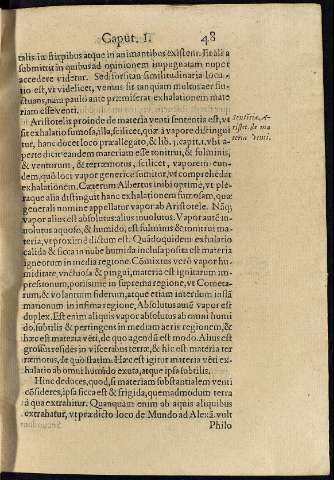 Caput. I. 48
talis in stirpibus atque in animantibus existens. Et alia
submittit in quibus ad opinionem impugnatam nuper
accedere videtur. Sed forsitan similitudinaria locu-
tio est, vt videlicet, ventus sit tanquam multus aer flu-
ctuans, nam paulo ante præmiserat exhalationem mate
riam esse venti.
Aristotelis proinde de materia venti sententia est, vt
sit exhalatio fumosa, illa, scilicet, quæ à vapore distingui
tur, hanc docet loco præallegato, & lib. 3. cap. 1. vbi a-
perte dicit eandem materiam esse tonitrui, & fulminis,
& venti, & terræmotus, scilicet, vaporem eun-
dem, quòd loci vapor generice sumitur, vt comprehédat
exhalationem. Cæterum Albertus inibi optime, vt ple-
raque alia distinguit hanc exhalationem fumosam, quæ
generali nomine appellatur vapor ab Aristotele. Nãq;
vapor alius est absolutus: alius inuolutus. Vapor autẽ in-
uolutus aquoso, & humido, est fulminis & tonitrui ma-
teria, vt proxime dictum est. Quandoquidem exhalatio
calida & sicca in nube humida inclusa posita est materia
igneorum in media regione. Cõmixtus verò vapor hu-
miditate, vnctuosa & pingui, materia est ignitarum im-
pressionum, potissime in suprema regione, vt Cometa-
rum, & volantium siderum, atque etiam interdum ifsta
manonum in infima regione. Absolutus autẽ vapor est
duplex. Est enim aliquis vapor absolutus ab omni humi
do, subtilis & pertingens in mediam aeris regionem, &
hæc est materia vẽti, de quo agendũ est modo. Alius est
grossus residẽs in visceribus terræ, & hic est materia ter
ræmotus, de quo statim. Hæc est igitur materia vẽti ex-
halatio ab omni humido exuta, atque ipsa subtilis.
Hinc deduces, quod, si materiam substantialem venti
cõsideres, ipsa sicca est & frigida, quemadmodum terra
à qua extrahitur. Quanquam enim ab aquis aliquibus
extrahatur, vt prædicto loco de Mundo ad Alexã. vult
Philo
Sententia A-
ristot. de ma
teria venti.